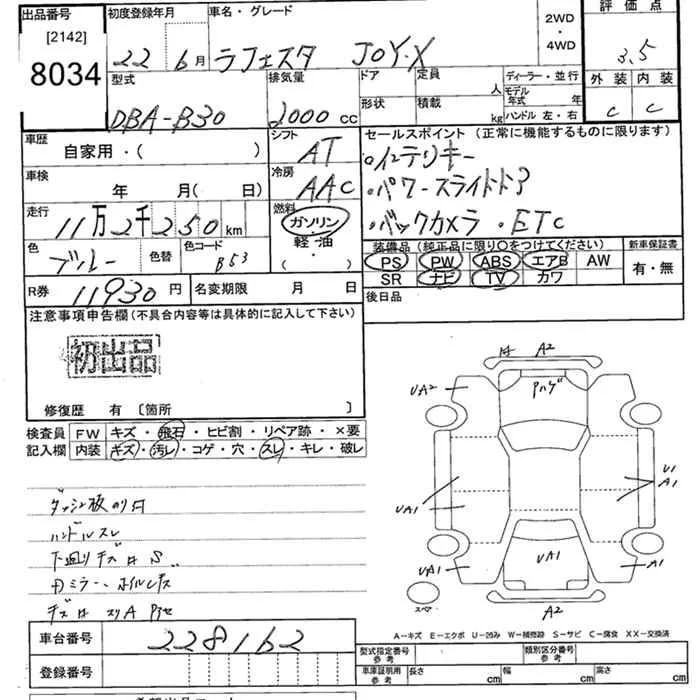 出品番号
[2142]
8034
初度登録年月
22 6月
車名・グレード
ラフェスタ JOY.X
2WD
・
4WD
評価点
3.5
外装 内装
C C
型式
DBA-B30
排気量
2000 CC
ドア
定員 人
形状
積載 kg
ディーラー・並行
モデル年式 年
ハンドル 左・右
車歴
自家用・( )
シフト
AT
セールスポイント (正常に機能するものに限ります)
・インテリキー
・パワースライドドア
・バックカメラ ・ETC
車検
年 月( 日)
冷房
AAC
走行
11万2千250km
燃料
ガソリン
軽・油
( )
色
ブルー
色替
色コード
B53
装備品 (純正品に限り○をつけてください)
PS PW ABS エアB AW
SR ナビ TV カワ
新車保証書
有・無
R券 11930円
名変期限 月 日
後日品
注意事項申告欄(不具合内容等は具体的に記入して下さい)
初出品
修復歴 有 〔箇所 〕
検査員
記入欄
FW キズ・飛石・ヒビ割・リペア跡・×要
内装 キズ・汚レ・コゲ・穴・スレ・キレ・破レ
ダッシュ板のり付
ハンドルスレ
下廻りキズ
A2
UA2
Pハゲ
UA1
UA1
UA1
U1
A1
A1
A2
スペア
A-キズ E-エクボ U-凹み W-補修跡 S-サビ C-腐食 XX-交換済
車台番号
228162
登録番号
型式指定番号
参考
類別区分番号
参考
車庫証明用
参考
長さ cm
幅 cm
高さ cm